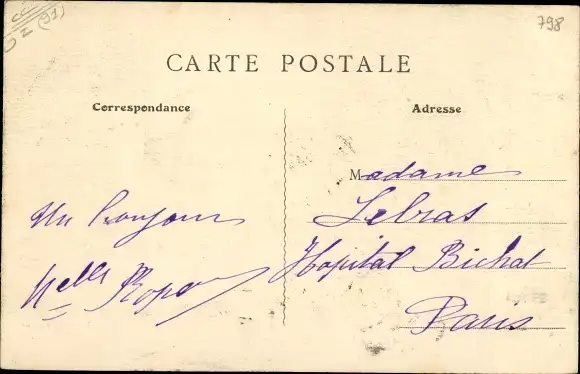 (91)
798
CARTE POSTALE
Correspondance
Adresse
Un bonjour
Madame
Lebras
Hopital Bichat
Paris